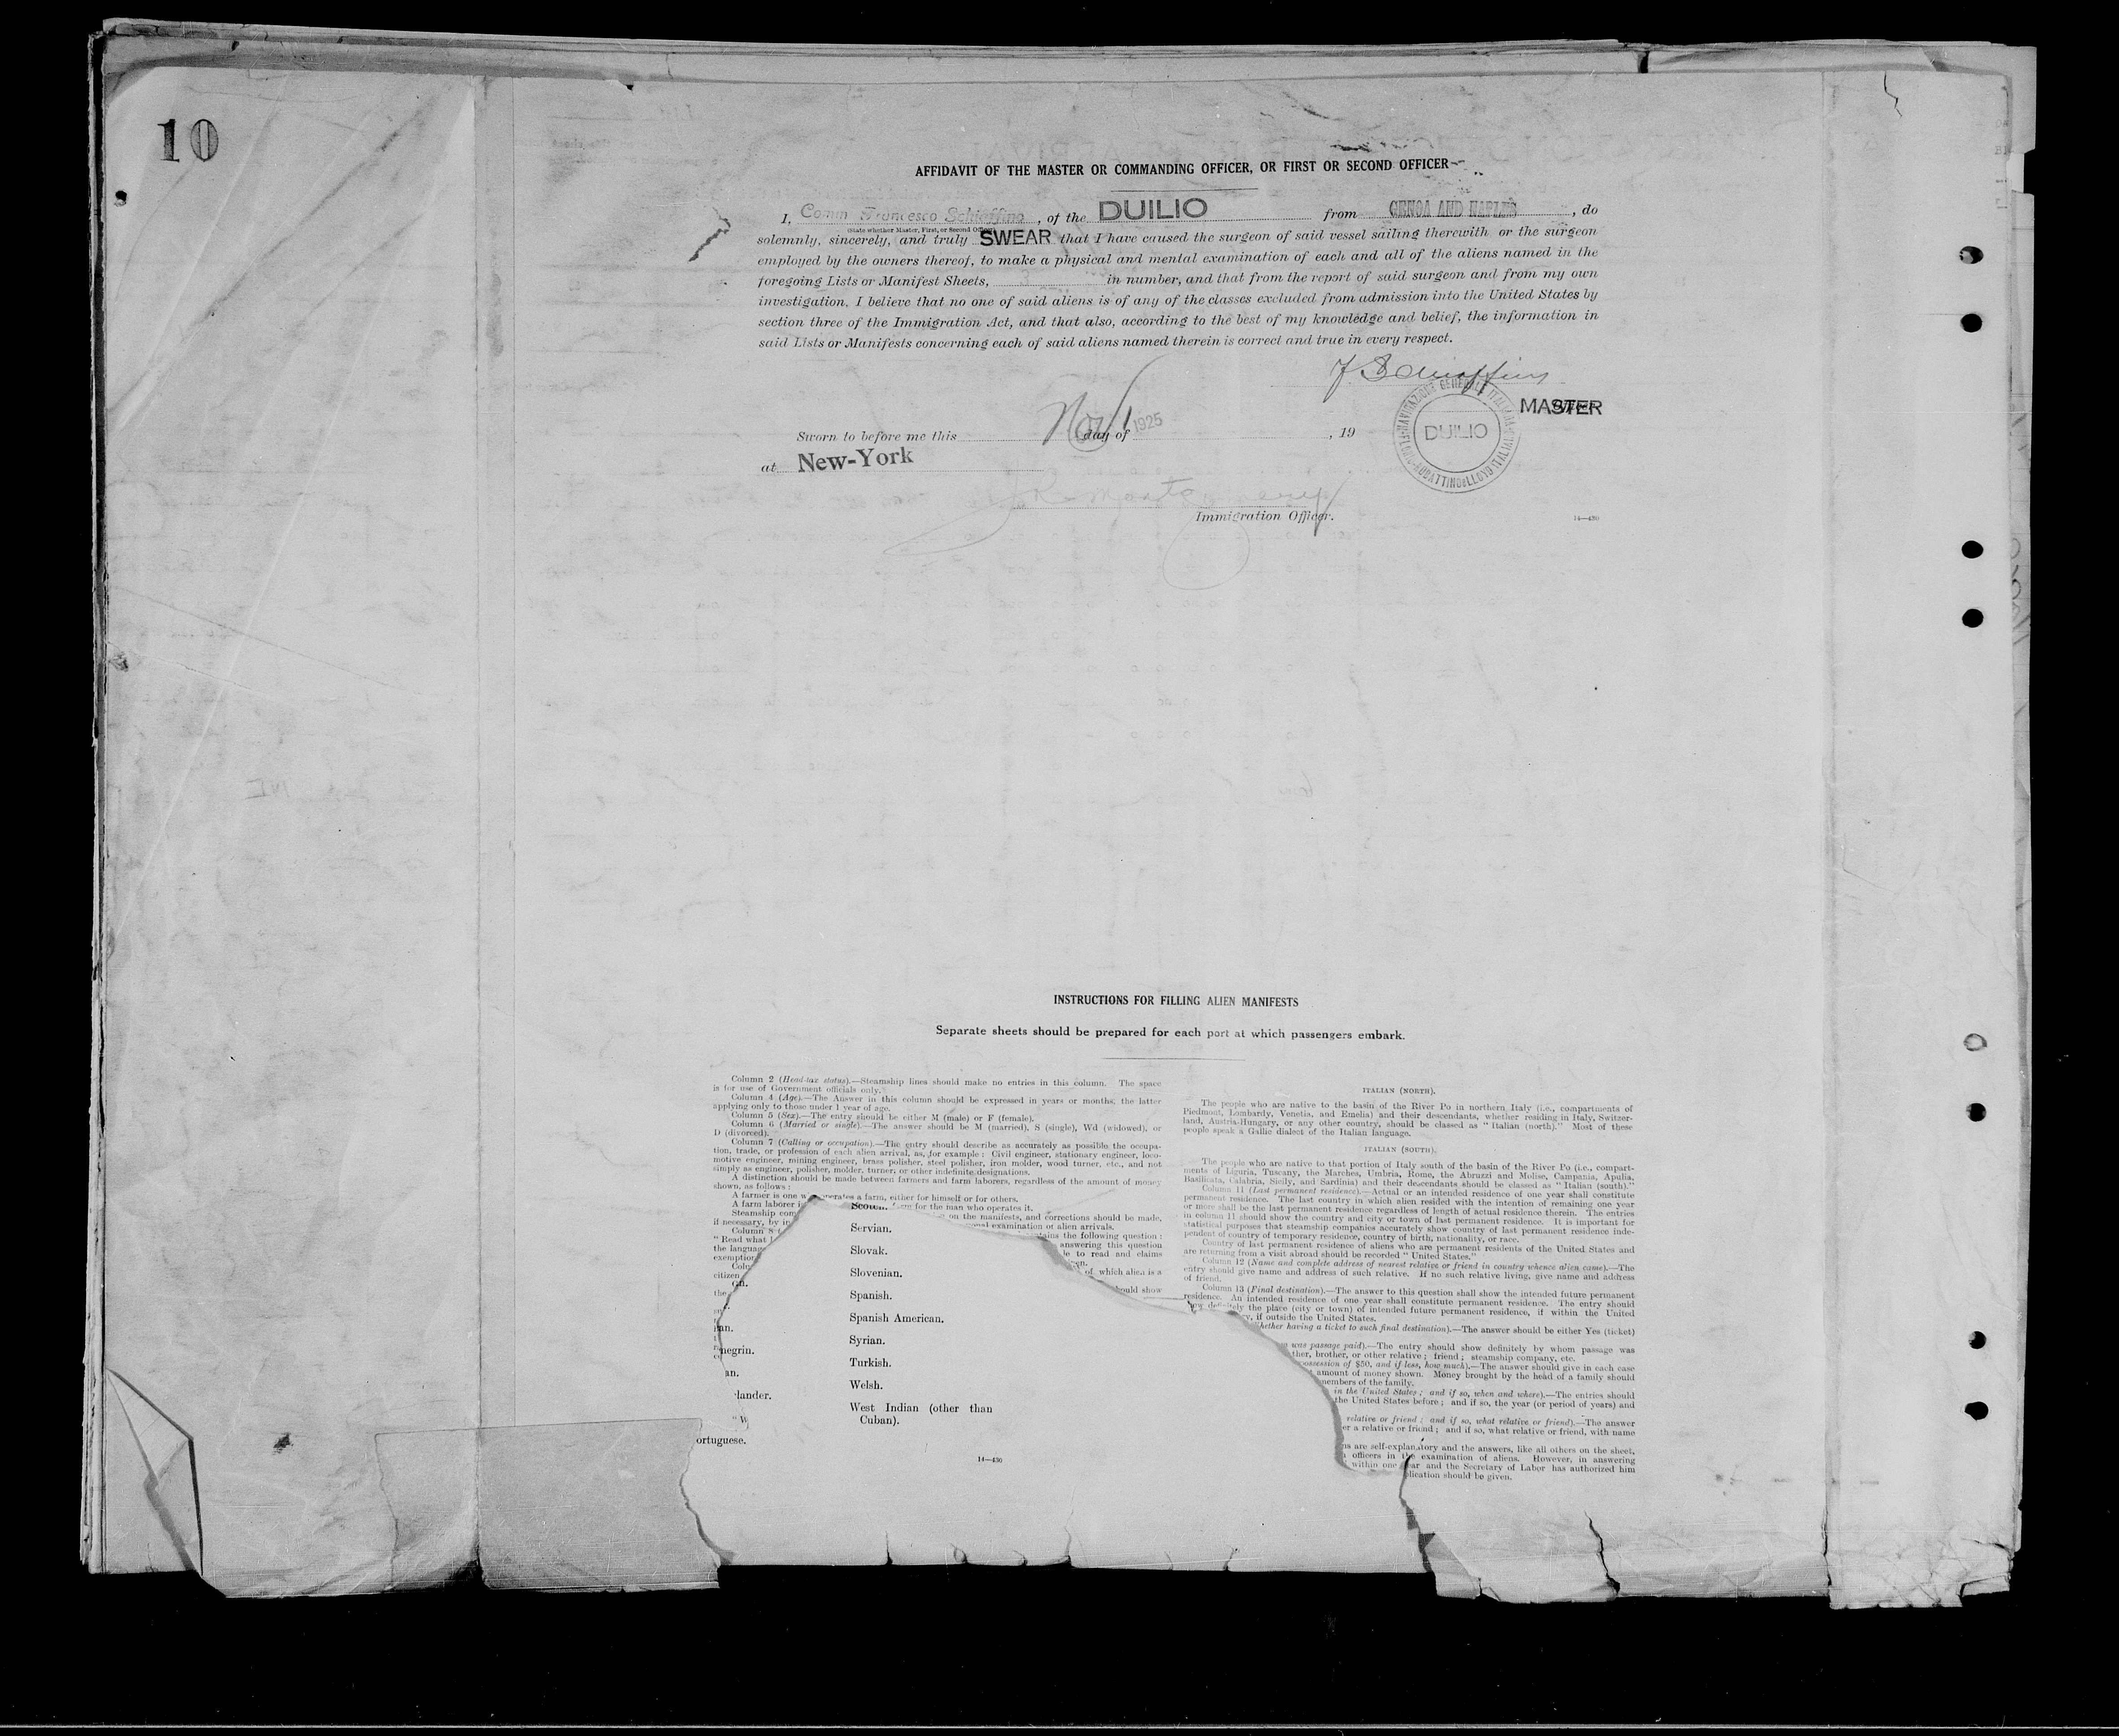 10
AFFIDAVIT OF THE MASTER OR COMMANDING OFFICER, OR FIRST OR SECOND OFFICER
I, Comm Francesco Schiaffino, of the DUILIO from GENOA AND NAPLES, do
(State whether Master, First, or Second Officer)
solemnly, sincerely, and truly SWEAR that I have caused the surgeon of said vessel sailing therewith or the surgeon
employed by the owners thereof, to make a physical and mental examination of each and all of the aliens named in the
foregoing Lists or Manifest Sheets, in number, and that from the report of said surgeon and from my own
investigation, I believe that no one of said aliens is of any of the classes excluded from admission into the United States by
section three of the Immigration Act, and that also, according to the best of my knowledge and belief, the information in
said Lists or Manifests concerning each of said aliens named therein is correct and true in every respect.
F Schiaffino
MASTER
NAVIGAZIONE GENERALE ITALIANA
DUILIO
Sworn to before me this day of Nov 1 1925, 19
at New-York
Montgomery
Immigration Officer.
14—430
INSTRUCTIONS FOR FILLING ALIEN MANIFESTS
Separate sheets should be prepared for each port at which passengers embark.
Column 2 (Head-tax status).—Steamship lines should make no entries in this column. The space
is for use of Government officials only.
Column 4 (Age).—The Answer in this column should be expressed in years or months, the latter
applying only to those under 1 year of age.
Column 5 (Sex).—The entry should be either M (male) or F (female).
Column 6 (Married or single).—The answer should be M (married), S (single), Wd (widowed), or
D (divorced).
Column 7 (Calling or occupation).—The entry should describe as accurately as possible the occupa-
tion, trade, or profession of each alien arrival, as, for example : Civil engineer, stationary engineer, loco-
motive engineer, mining engineer, brass polisher, steel polisher, iron molder, wood turner, etc., and not
simply as engineer, polisher, molder, turner, or other indefinite designations.
A distinction should be made between farmers and farm laborers, regardless of the amount of money
shown, as follows :
A farmer is one w operates a farm, either for himself or for others.
A farm laborer i farm for the man who operates it.
Steamship com on the manifests, and corrections should be made,
if necessary, by in examination or alien arrivals.
Column 8 tains the following question :
" Read what answering this question
the languag le to read and claims
exemption
Colu of which alien is a
citizen
the ould show
Scotch.
Servian.
Slovak.
Slovenian.
Spanish.
Spanish American.
Syrian.
Turkish.
Welsh.
West Indian (other than
Cuban).
an.
negrin.
an.
lander.
" W
ortuguese.
14—430
ITALIAN (NORTH).
The people who are native to the basin of the River Po in northern Italy (i.e., compartments of
Piedmont, Lombardy, Venetia, and Emelia) and their descendants, whether residing in Italy, Switzer-
land, Austria-Hungary, or any other country, should be classed as " Italian (north)." Most of these
people speak a Gallic dialect of the Italian language.
ITALIAN (SOUTH).
The people who are native to that portion of Italy south of the basin of the River Po (i.e., compart-
ments of Liguria, Tuscany, the Marches, Umbria, Rome, the Abruzzi and Molise, Campania, Apulia,
Basilicata, Calabria, Sicily, and Sardinia) and their descendants should be classed as " Italian (south)."
Column 11 (Last permanent residence).—Actual or an intended residence of one year shall constitute
permanent residence. The last country in which alien resided with the intention of remaining one year
or more shall be the last permanent residence regardless of length of actual residence therein. The entries
in column 11 should show the country and city or town of last permanent residence. It is important for
statistical purposes that steamship companies accurately show country of last permanent residence inde-
pendent of country of temporary residence, country of birth, nationality, or race.
Country of last permanent residence of aliens who are permanent residents of the United States and
are returning from a visit abroad should be recorded " United States."
Column 12 (Name and complete address of nearest relative or friend in country whence alien came).—The
entry should give name and address of such relative. If no such relative living, give name and address
of friend.
Column 13 (Final destination).—The answer to this question shall show the intended future permanent
residence. An intended residence of one year shall constitute permanent residence. The entry should
how definitely the place (city or town) of intended future permanent residence, if within the United
ry, if outside the United States.
hether having a ticket to such final destination).—The answer should be either Yes (ticket)
was passage paid).—The entry should show definitely by whom passage was
ther, brother, or other relative ; friend ; steamship company, etc.
possession of $50, and if less, how much).—The answer should give in each case
amount of money shown. Money brought by the head of a family should
members of the family.
in the United States ; and if so, when and where).—The entries should
the United States before ; and if so, the year (or period of years) and
relative or friend ; and if so, what relative or friend).—The answer
er a relative or friend ; and if so, what relative or friend, with name
ns are self-explanatory and the answers, like all others on the sheet,
officers in the examination of aliens. However, in answering
within one year and the Secretary of Labor has authorized him
plication should be given.